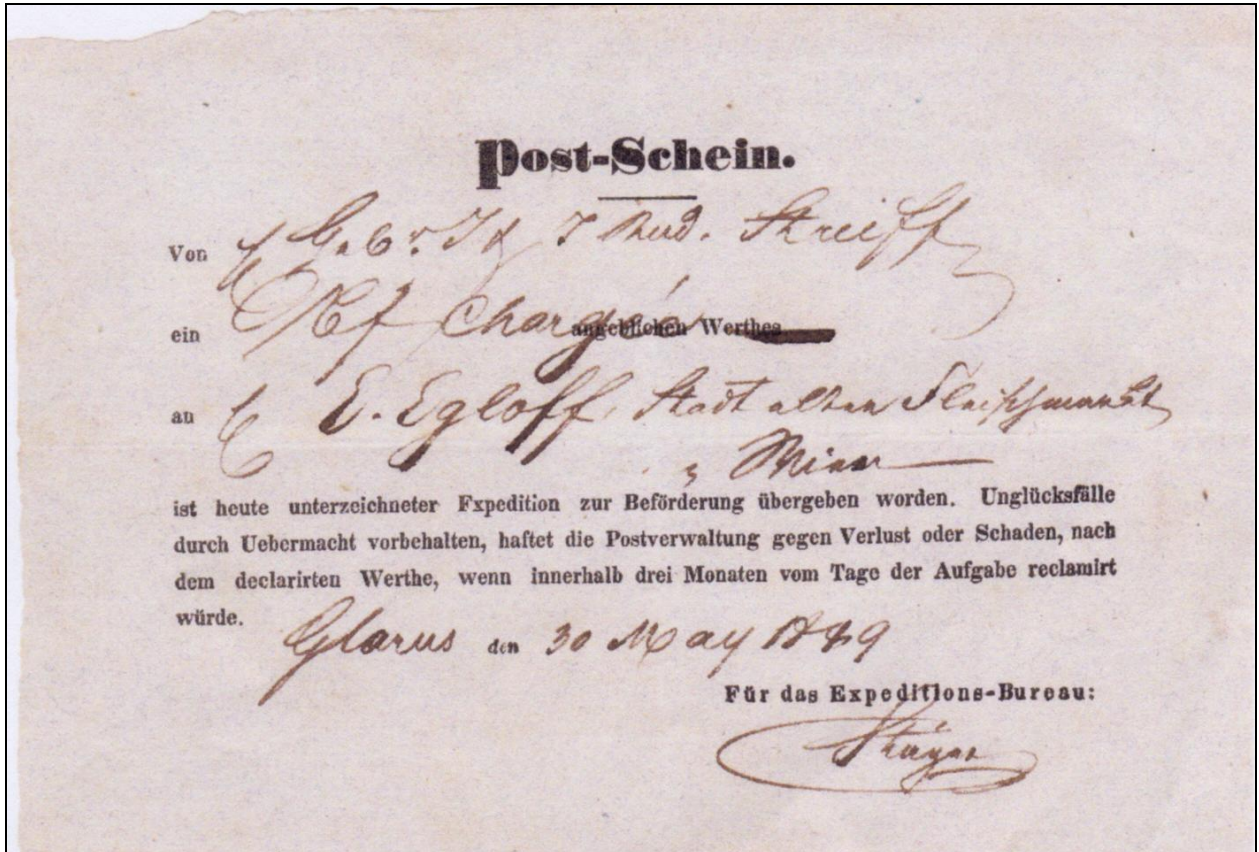 Post-Schein.
Von Gebr. J. Rud. Streiff
ein Bf Chargée angeblichen Werthes
an E. Egloff, Stadt alten Fleischmarkt
Wien
ist heute unterzeichneter Fxpedition zur Beförderung übergeben worden. Unglücksfälle
durch Uebermacht vorbehalten, haftet die Postverwaltung gegen Verlust oder Schaden, nach
dem declarirten Werthe, wenn innerhalb drei Monaten vom Tage der Aufgabe reclamirt
würde.
Glarus den 30 May 1849
Für das Expeditions-Bureau: